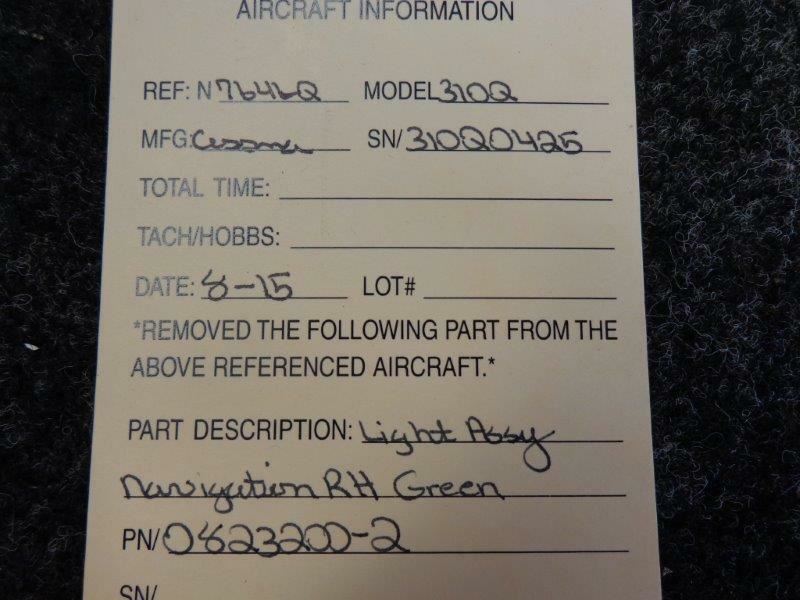 AIRCRAFT INFORMATION
REF: N 7646Q MODEL 310Q
MFG: Cessna SN/ 310Q0425
TOTAL TIME:
TACH/HOBBS:
DATE: 8-15 LOT#
*REMOVED THE FOLLOWING PART FROM THE
ABOVE REFERENCED AIRCRAFT.*
PART DESCRIPTION: Light Assy
Navigation RH Green
PN/ 0823200-2
SN/